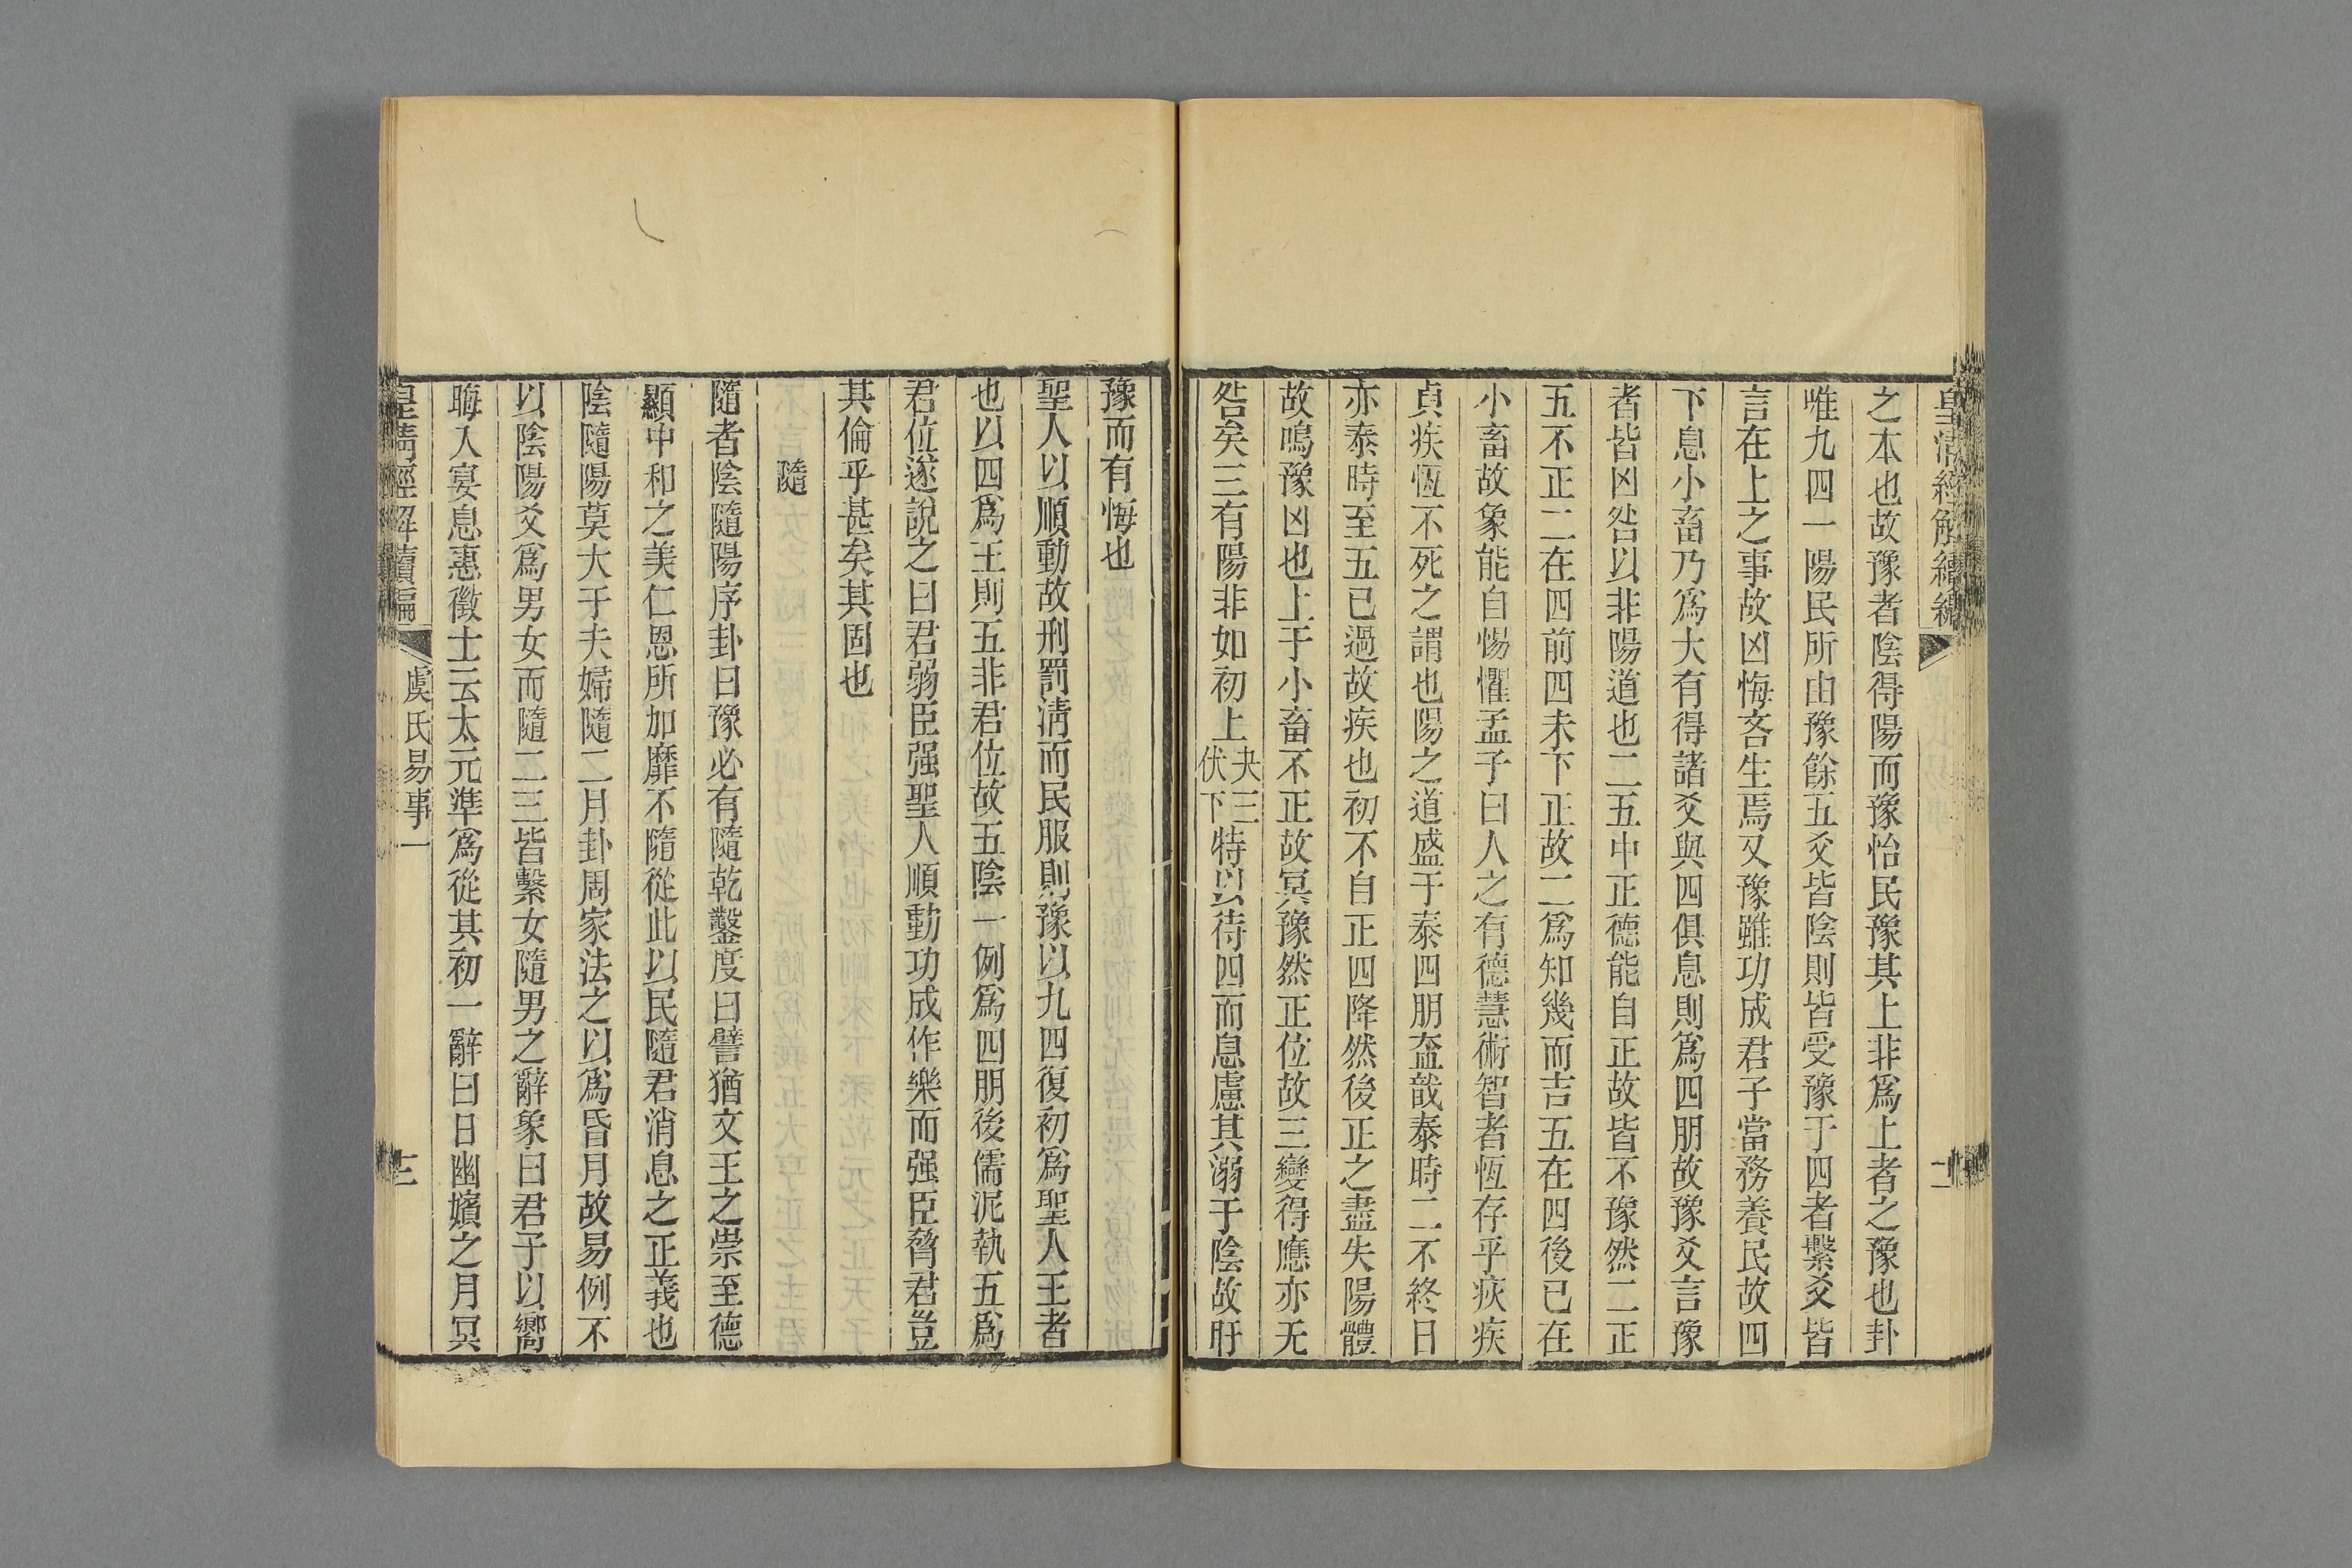 皇清經解續編
之本也故豫者陰得陽而豫怡民豫其上非爲上者之豫也卦
唯九四一陽民所由豫餘五爻皆陰則皆受豫于四者繫爻皆
言在上之事故凶悔吝生焉又豫雖功成君子當務養民故四
下息小畜乃爲大有得諸爻與四俱息則爲四朋故豫爻言豫
者皆凶咎以非陽道也二五中正德能自正故皆不豫然二正
五不正二在四前四未下正故二爲知幾而吉五在四後已在
小畜故象能自惕懼孟子曰人之有德慧術智者恆存乎疢疾
貞疾恆不死之謂也陽之道盛于泰四朋盍戠泰時二不終日
亦泰時至五已過故疾也初不自正四降然後正之盡失陽體
故鳴豫凶也上于小畜不正故冥豫然正位故三變得應亦无
咎矣三有陽非如初上夬三伏下特以待四而息慮其溺于陰故盱
豫而有悔也
聖人以順動故刑罰淸而民服則豫以九四復初爲聖人王者
也以四爲王則五非君位故五陰一例爲四朋後儒泥執五爲
君位遂說之曰君弱臣强聖人順動功成作樂而强臣脅君豈
其倫乎甚矣其固也
隨
隨者陰隨陽序卦曰豫必有隨乾鑿度曰譬猶文王之崇至德
顯中和之美仁恩所加靡不隨從此以民隨君消息之正義也
陰隨陽莫大于夫婦隨二月卦周家法之以爲昏月故易例不
以陰陽爻爲男女而隨二三皆繫女隨男之辭象曰君子以嚮
晦入宴息惠徵士云太元準爲從其初一辭曰日幽嬪之月冥
皇淸經解續編
虞氏易事一